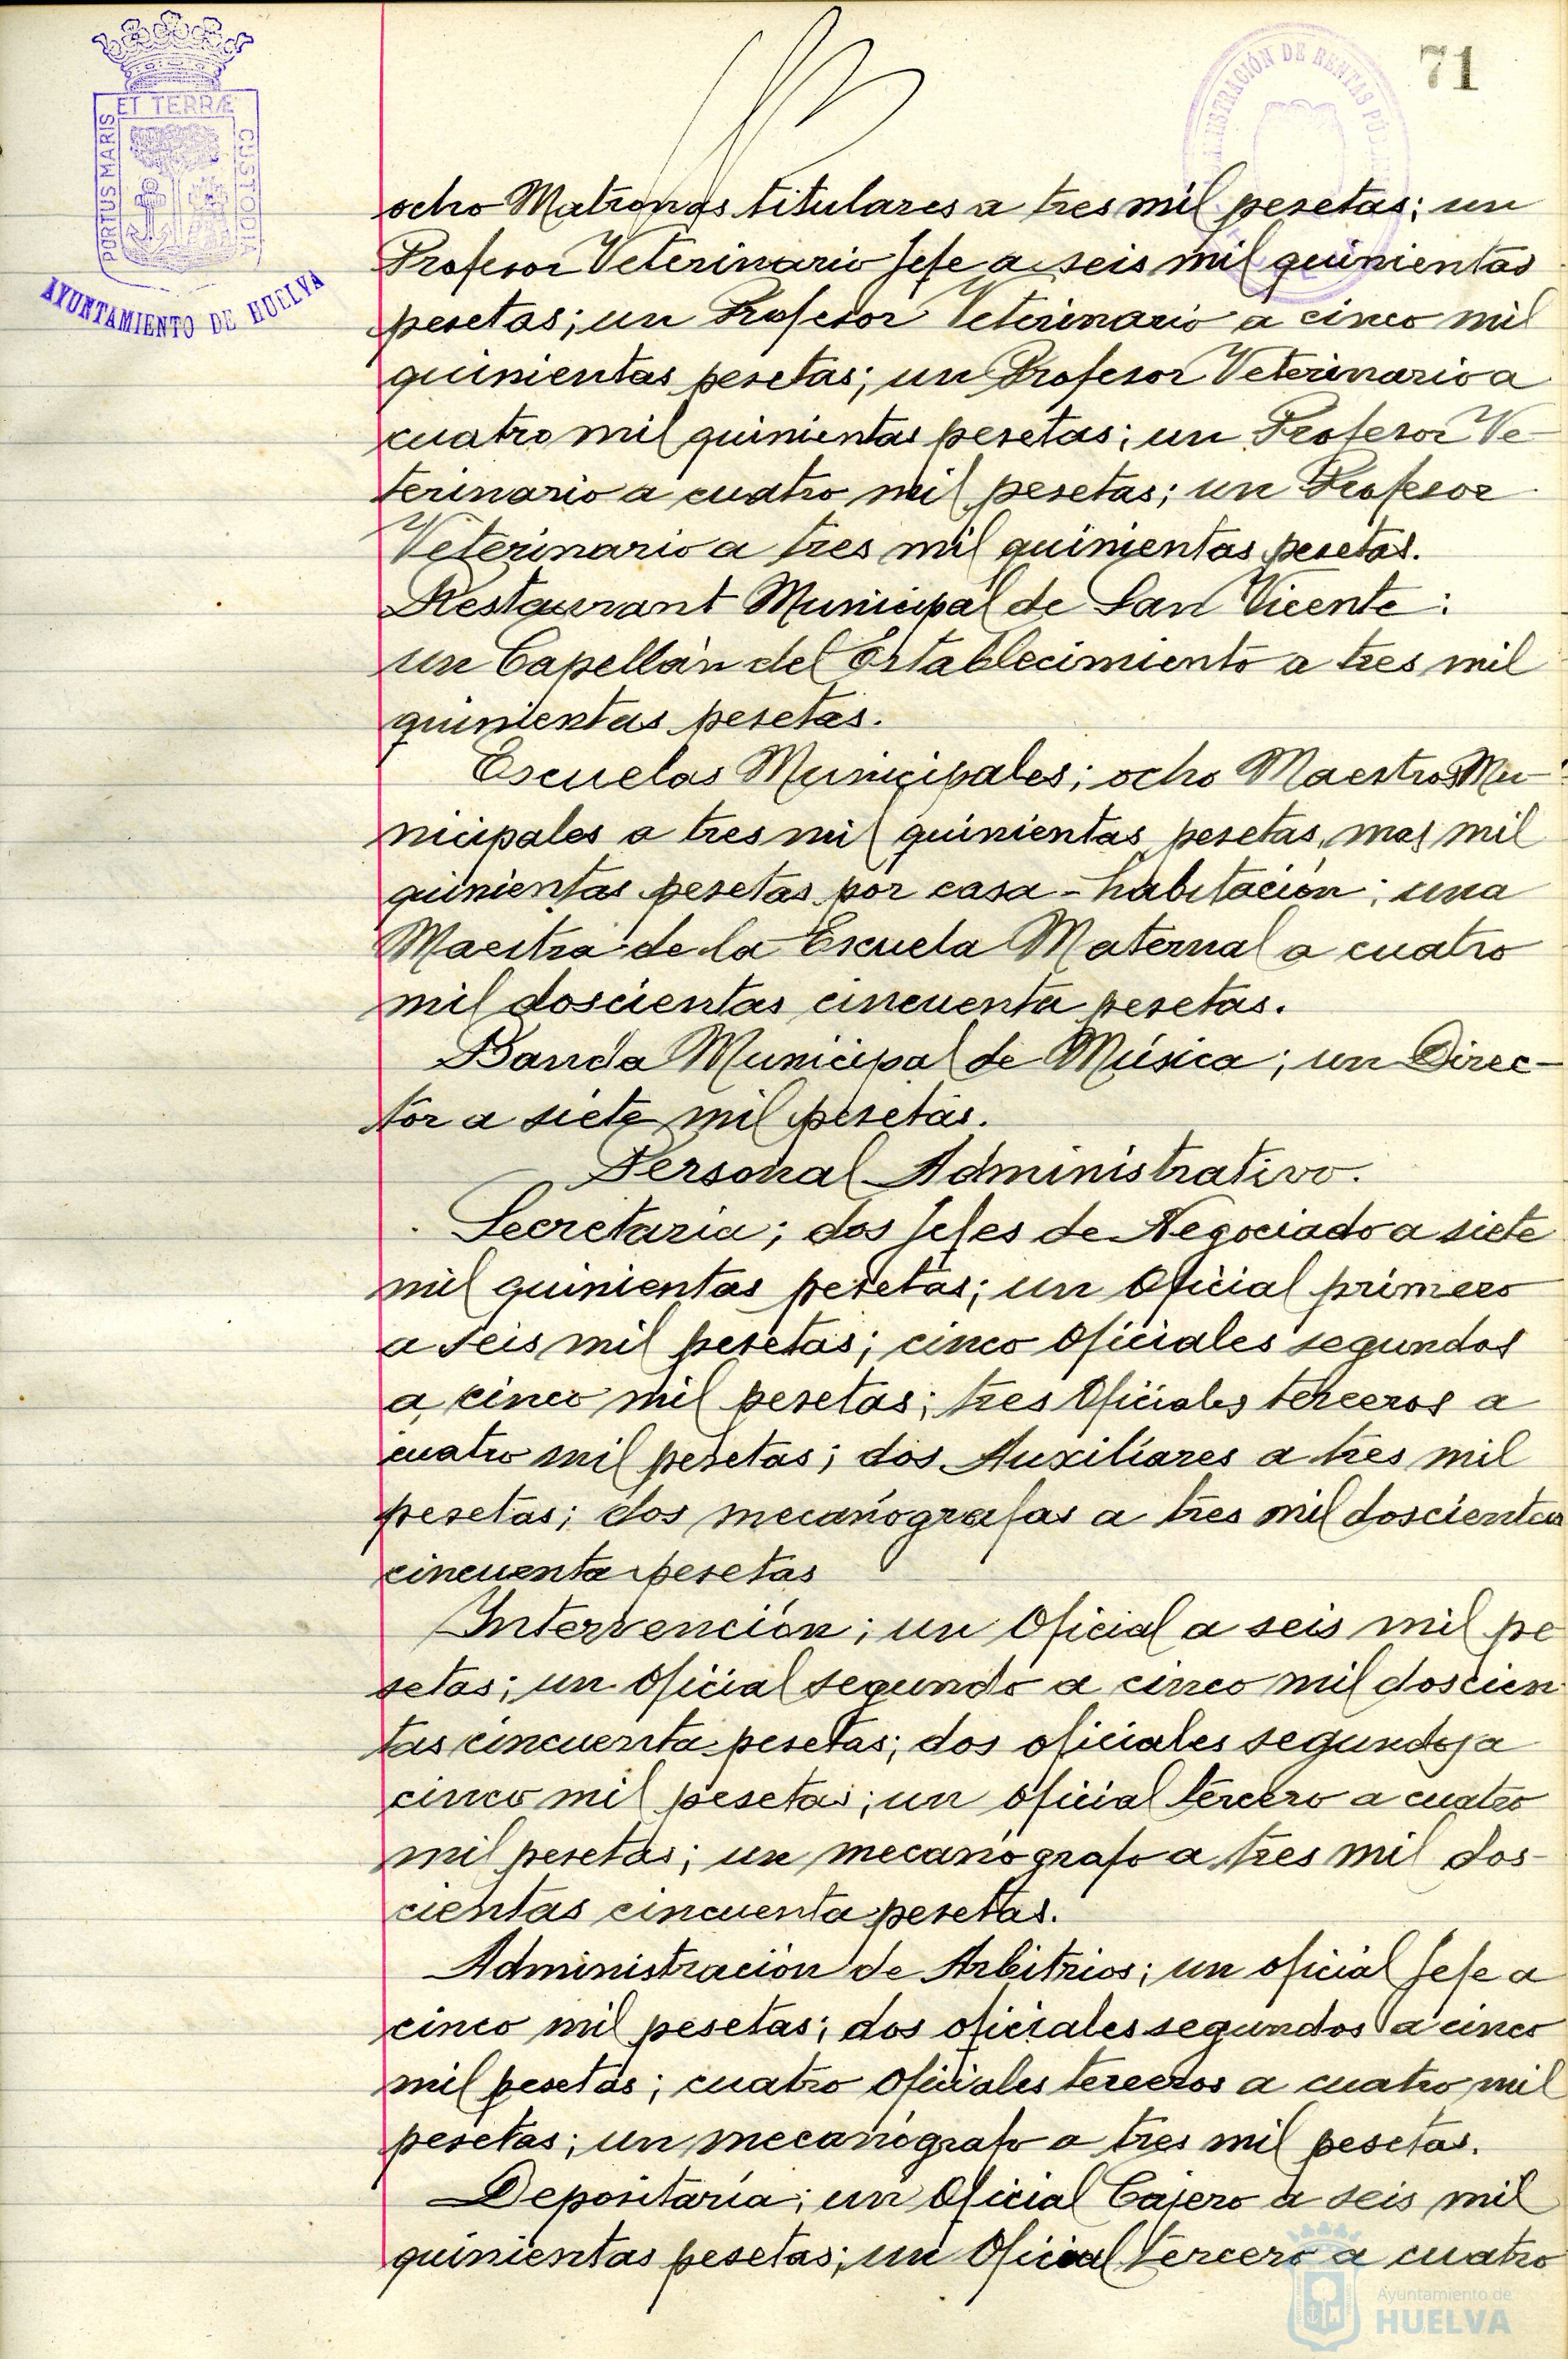 71
ET TERRÆ
PORTUS MARIS
CUSTODIA
AYUNTAMIENTO DE HUELVA
ADMINISTRACIÓN DE RENTAS
ocho Matronas titulares a tres mil pesetas; un
Profesor Veterinario Jefe a seis mil quinientas
pesetas; un Profesor Veterinario a cinco mil
quinientas pesetas; un Profesor Veterinario a
cuatro mil quinientas pesetas; un Profesor Ve-
terinario a cuatro mil pesetas; un Profesor
Veterinario a tres mil quinientas pesetas.
Restaurant Municipal de San Vicente:
un Capellán del Establecimiento a tres mil
quinientas pesetas.
Escuelas Municipales; ocho Maestros Mu-
nicipales a tres mil quinientas pesetas, mas mil
quinientas pesetas por casa-habitación; una
Maestra de la Escuela Maternal a cuatro
mil doscientas cincuenta pesetas.
Banda Municipal de Música; un Direc-
tor a siete mil pesetas.
Personal Administrativo.
Secretaria; dos Jefes de Negociado a siete
mil quinientas pesetas; un Oficial primero
a seis mil pesetas; cinco Oficiales segundos
a cinco mil pesetas; tres Oficiales terceros a
cuatro mil pesetas; dos Auxiliares a tres mil
pesetas; dos mecanógrafas a tres mil doscientas
cincuenta pesetas
Intervención; un Oficial a seis mil pe
setas; un Oficial segundo a cinco mil doscien
tas cincuenta pesetas; dos oficiales segundos a
cinco mil pesetas; un oficial tercero a cuatro
mil pesetas; un mecanógrafo a tres mil dos-
cientas cincuenta pesetas.
Administración de Arbitrios; un oficial Jefe a
cinco mil pesetas; dos oficiales segundos a cinco
mil pesetas; cuatro Oficiales terceros a cuatro mil
pesetas; un mecanógrafo a tres mil pesetas.
Depositaría; un Oficial Cajero a seis mil
quinientas pesetas; un Oficial tercero a cuatro
Ayuntamiento de
HUELVA